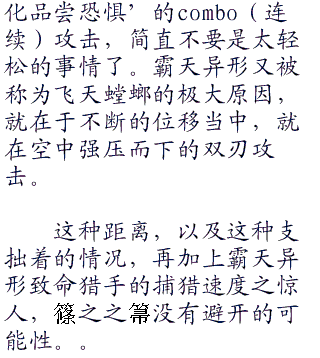 化品尝恐惧’的combo（连
续）攻击，简直不要是太轻
松的事情了。霸天异形又被
称为飞天螳螂的极大原因，
就在于不断的位移当中，就
在空中强压而下的双刃攻
击。
这种距离，以及这种支
拙着的情况，再加上霸天异
形致命猎手的捕猎速度之惊
人，之之没有避开的可
能性。。